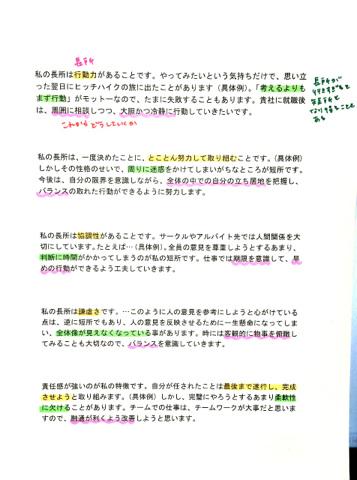 長所
私の長所は行動力があることです。やってみたいという気持ちだけで、思い立
った翌日にヒッチハイクの旅に出たことがあります（具体例）。「考えるよりも
まず行動」がモットーなので、たまに失敗することもあります。貴社に就職後
は、周囲に相談しつつ、大胆かつ冷静に行動していきたいです。
これからどうしていくか
長所が
行きすぎると
短所と
なりうることも
ある
私の長所は、一度決めたことに、とことん努力して取り組むことです。（具体例）
しかしその性格のせいで、周りに迷惑をかけてしまいがちなところが短所です。
今後は、自分の限界を意識しながら、全体の中での自分の立ち居地を把握し、
バランスの取れた行動ができるように努力します。
私の長所は協調性があることです。サークルやアルバイト先では人間関係を大
切にしています。たとえば…（具体例）。全員の意見を尊重しようとするあまり、
判断に時間がかかってしまうのが私の短所です。仕事では期限を意識して、早
めの行動ができるよう工夫していきます。
私の長所は謙虚さです。…このように人の意見を参考にしようと心がけている
点は、逆に短所でもあり、人の意見を反映させるために一生懸命になってしま
い、全体像が見えなくなっている事があります。時には客観的に物事を俯瞰し
てみることも大切なので、バランスを意識していきます。
責任感が強いのが私の特徴です。自分が任されたことは最後まで遂行し、完成
させようと取り組みます。（具体例）しかし、完璧にやろうとするあまり柔軟性
に欠けることがあります。チームでの仕事は、チームワークが大事だと思いま
すので、融通が利くよう改善しようと思います。